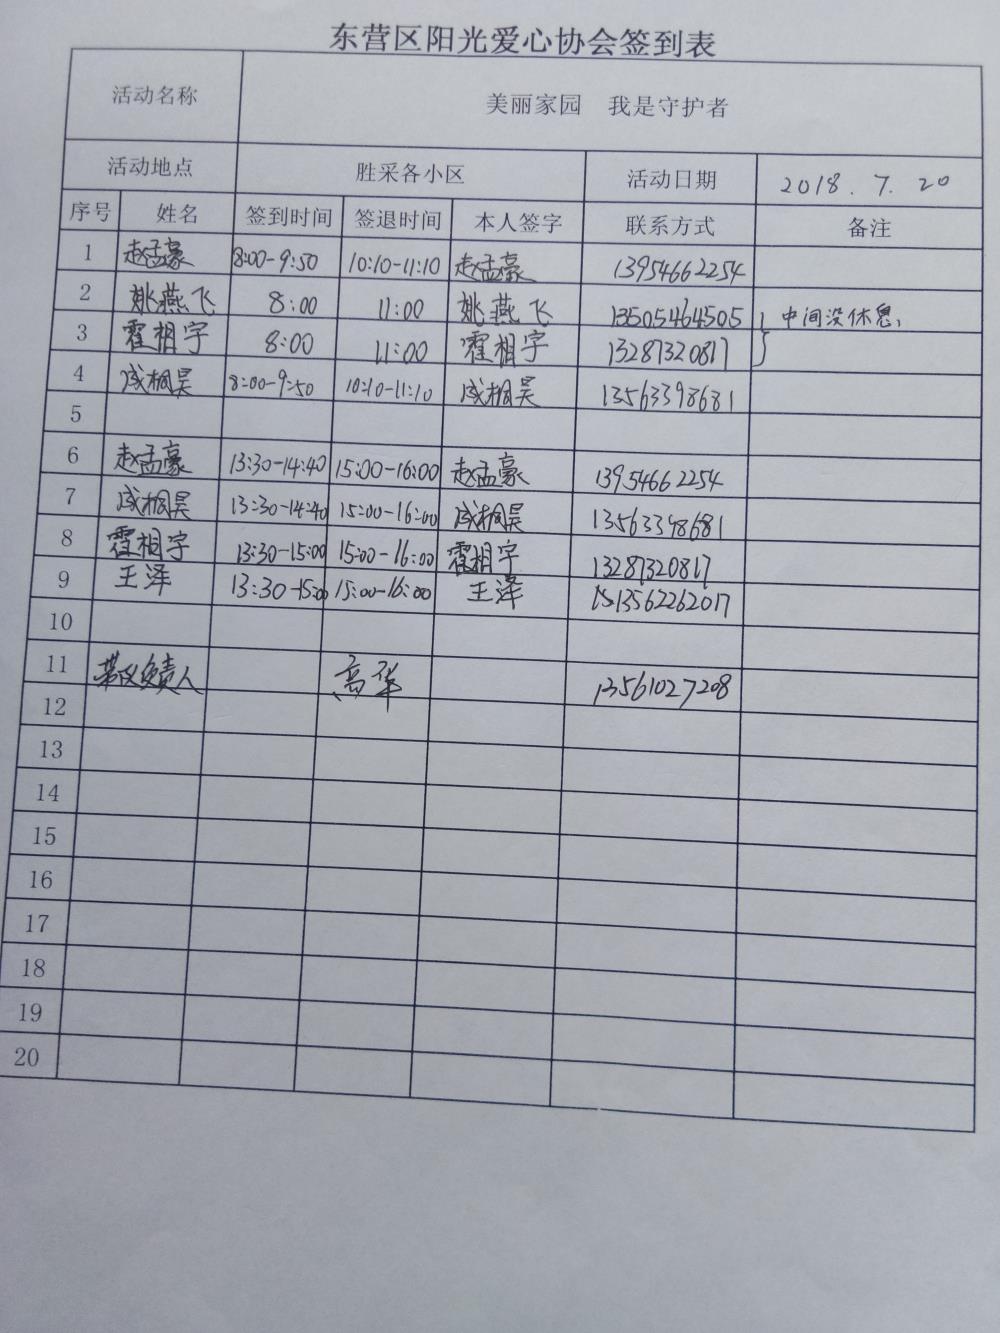 东营区阳光爱心协会签到表
活动名称 美丽家园 我是守护者
活动地点 胜采各小区 活动日期 2018.7.20
序号 姓名 签到时间 签退时间 本人签字 联系方式 备注
1 赵孟豪 8:00-9:50 10:10-11:10 赵孟豪 13954662254
2 姚燕飞 8:00 11:00 姚燕飞 13505464505 中间没休息、
3 霍相宇 8:00 11:00 霍相宇 13287320817
4 成桐昊 8:00-9:50 10:10-11:10 成桐昊 13563398681
5
6 赵孟豪 13:30-14:40 15:00-16:00 赵孟豪 13954662254
7 成桐昊 13:30-14:40 15:00-16:00 成桐昊 13563398681
8 霍相宇 13:30-15:00 15:00-16:00 霍相宇 13287320817
9 王泽 13:30-15:00 15:00-16:00 王泽 13562262017
10
11 带队负责人 高华 13561027208
12
13
14
15
16
17
18
19
20